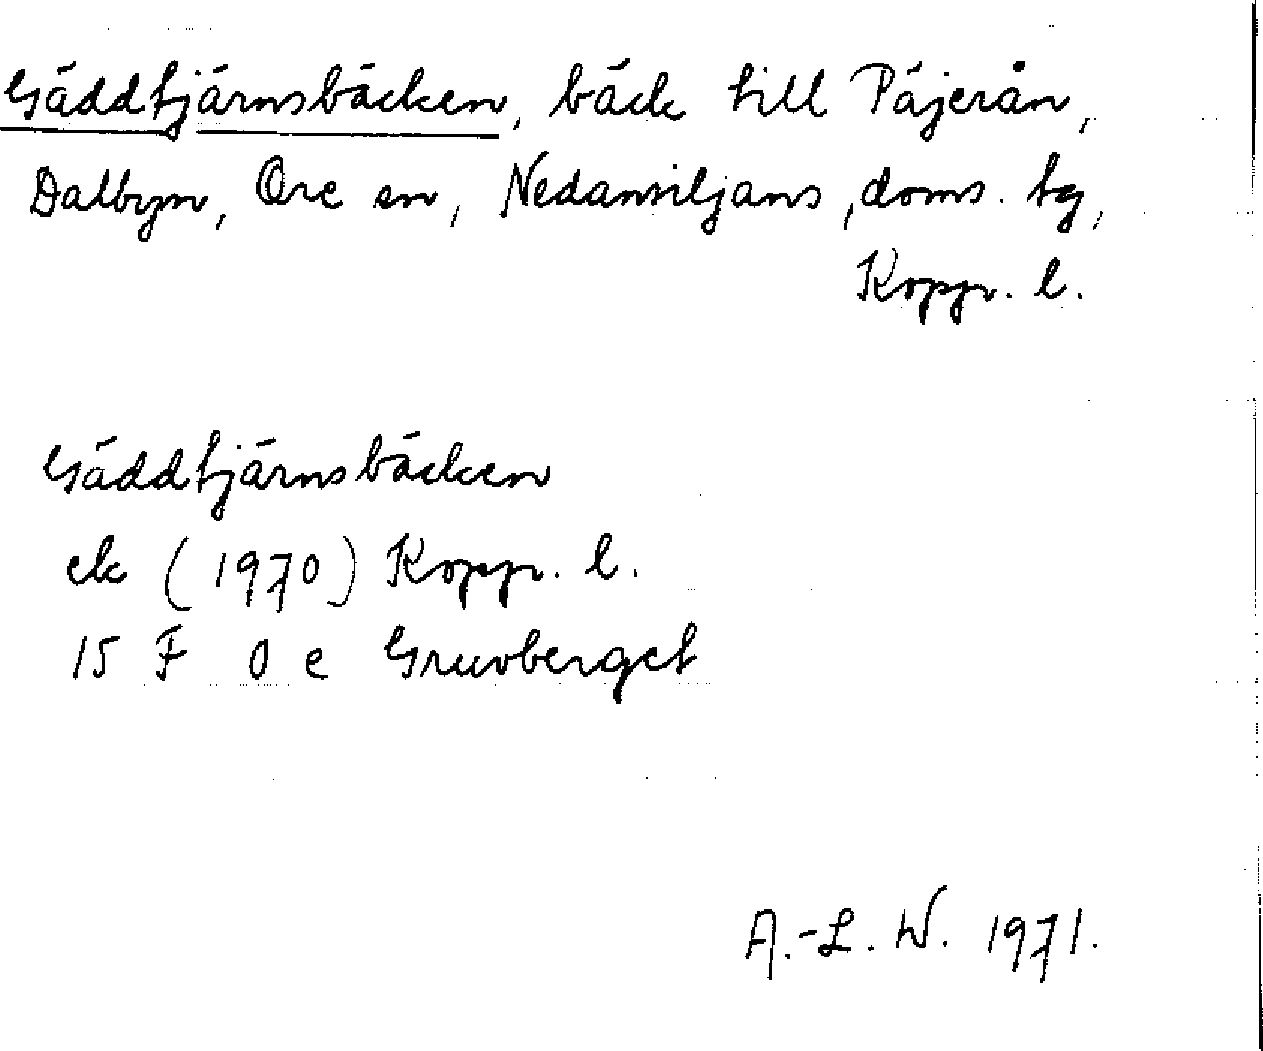 Gäddtjärnsbäcken, bäck till Päjerån,
Dalbyn, Ore sn, Nedansiljans, doms. tg,
Kopp. l.
Gäddtjärnsbäcken
ek (1970) Kopp. l.
15 F 0 e Gruvberget
A.-L. W. 1971.